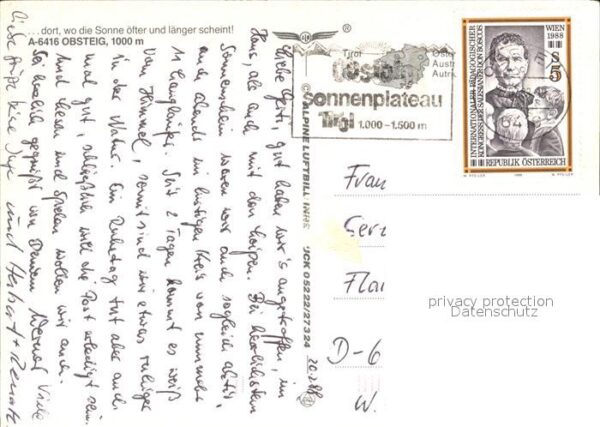 ... dort, wo die Sonne öfter und länger scheint!
A-6416 OBSTEIG, 1000 m
Liebe Gerti, gut haben wir's angetroffen, im
Haus, als auch mit den Loipen. Bei herrlichstem
Sonnenschein waren wir auch sogleich aktiv,
und abends im lustigen Kreis von nunmehr
11 Langläufer. Seit 2 Tagen kommt es weiß
vom Himmel, somit sind wir etwas ruhiger
in der Natur. Ein Ruhetag tut aber auch
mal gut, schließlich will die Post erledigt sein.
Und lesen und spielen wollen wir auch.
Sei herzlich gegrüßt von Deinem Werner Viele
liebe Grüße
und Herbert + Renate
20.2.88
© ALPINE LUFTBILD INNSBRUCK 05222/27324
Tirol
Österr
Austr
Autri
Obsteig
Sonnenplateau
Tirol 1.000-1.500 m
INTERNATIONALER PÄDAGOGISCHER
KONGRESS DER SALESIANER DON BOSCOS
WIEN
1988
S 5
REPUBLIK ÖSTERREICH
1988
Frau
Ger
Fla
D-6
W.
privacy protection
Datenschutz